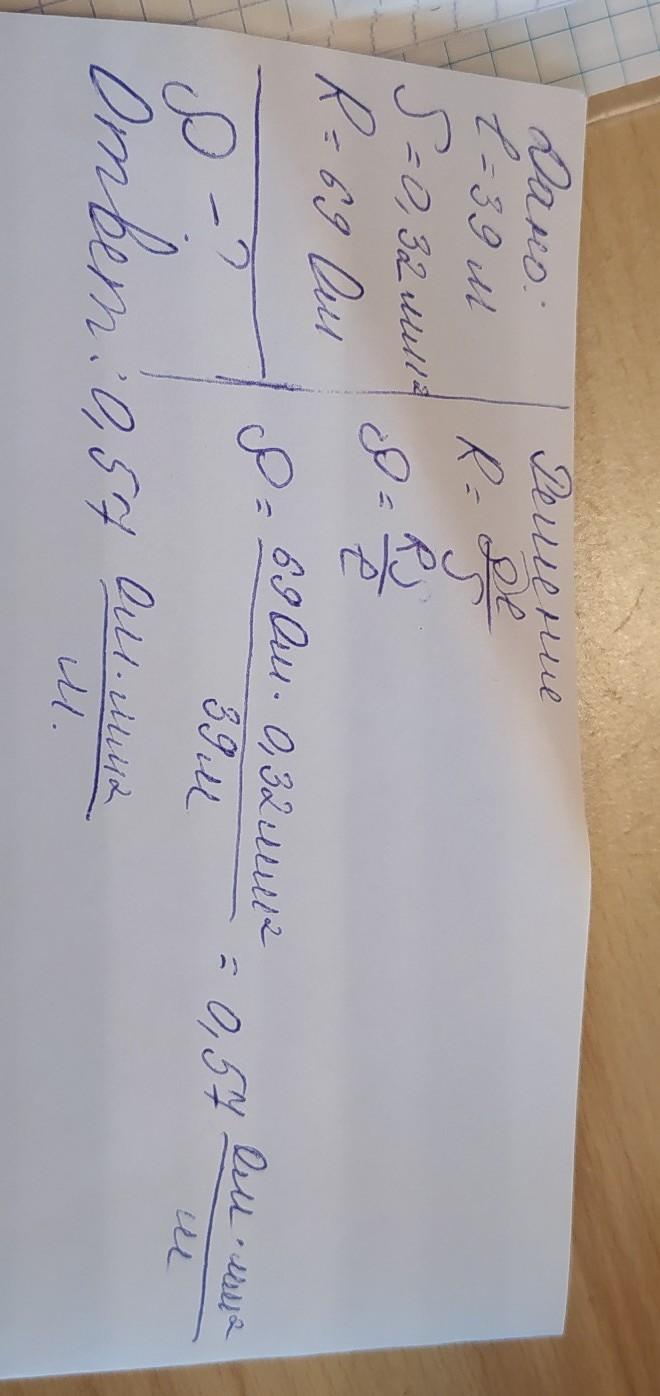 Дано:
l = 39 м
S = 0,32 мм²
R = 69 Ом
ρ - ?
Решение
R = ρl / S
ρ = RS / l
ρ = 69 Ом · 0,32 мм² / 39 м = 0,57 Ом · мм² / м
Ответ: 0,57 Ом · мм² / м.